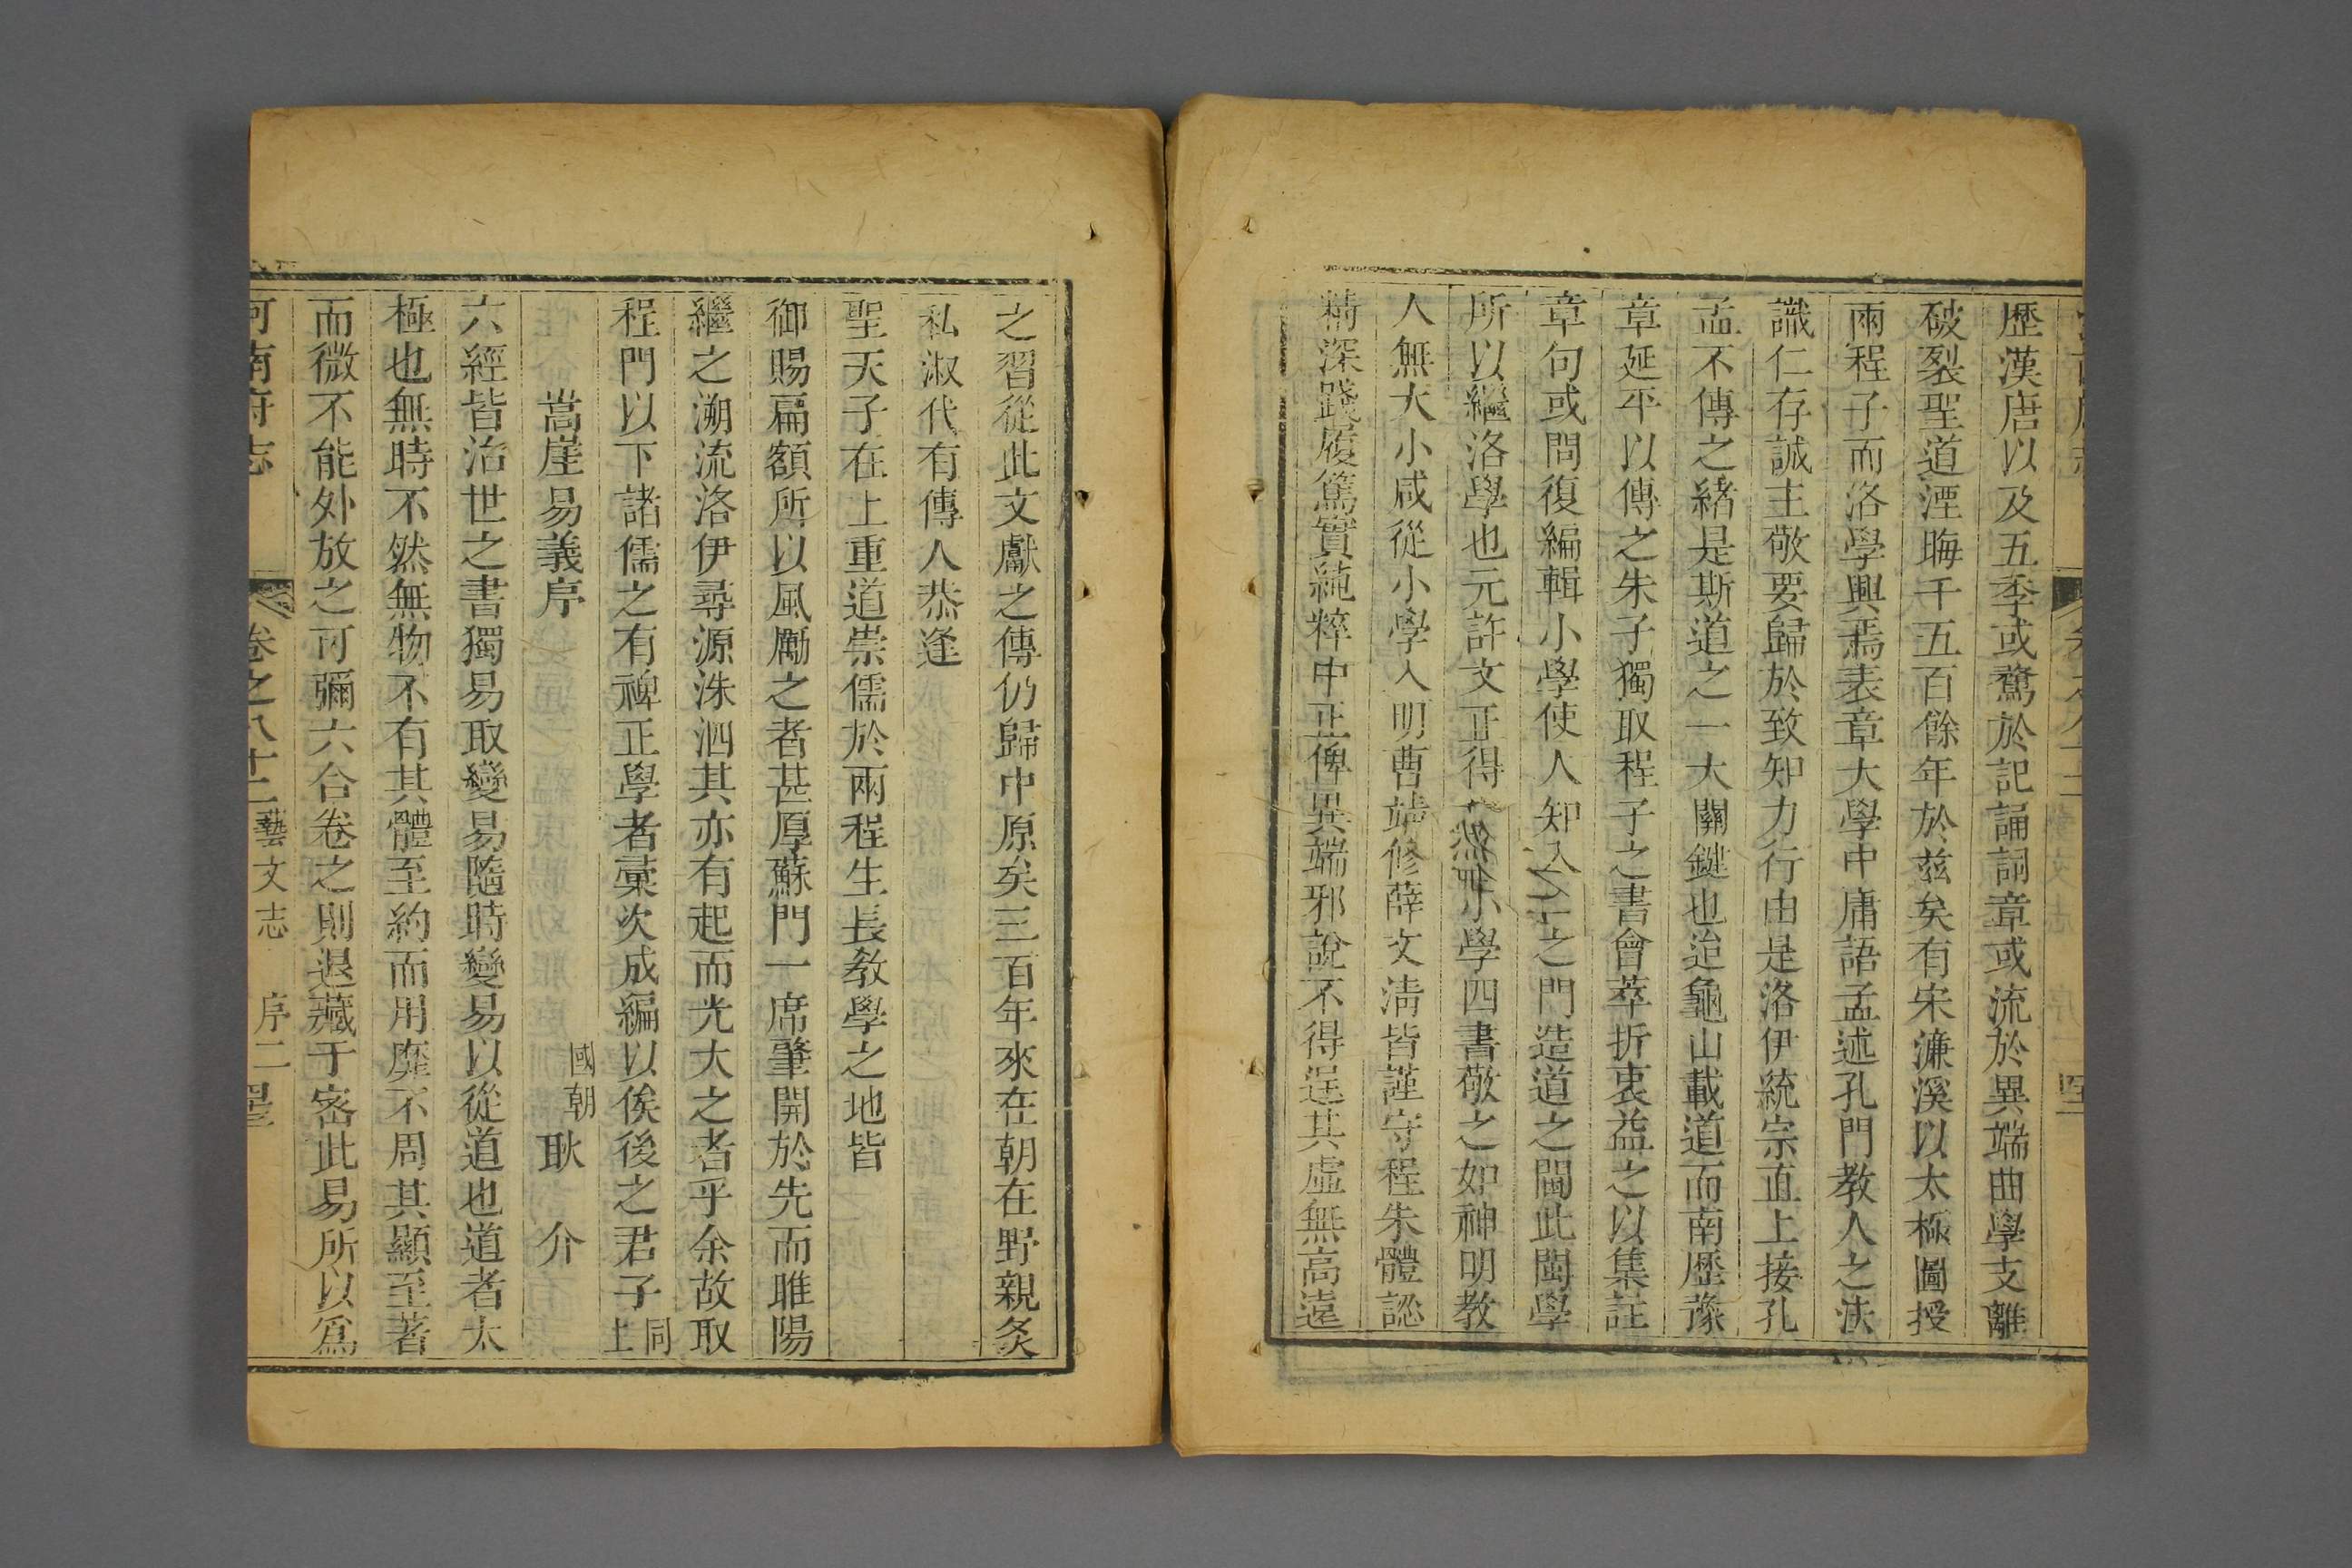 歷漢唐以及五季或騖於記誦詞章或流於異端曲學支離
破裂聖道湮晦千五百餘年於兹矣有宋濂溪以太極圖授
兩程子而洛學興焉表章大學中庸語孟述孔門教人之法
識仁存誠主敬要歸於致知力行由是洛伊統宗直上接孔
孟不傳之緒是斯道之一大關鍵也迨龜山載道而南歷豫
章延平以傳之朱子獨取程子之書會萃折衷益之以集註
章句或問復編輯小學使人知入之門造道之閫此閩學
所以繼洛學也元許文正得小學四書敬之如神明教
人無大小咸從小學入明曹端修薛文清皆謹守程朱體認
精深踐履篤實純粹中正俾異端邪說不得逞其虛無高遠
之習從此文獻之傳仍歸中原矣三百年來在朝在野親炙
私淑代有傳人恭逢
聖天子在上重道崇儒於兩程生長教學之地皆
御賜扁額所以風勵之者甚厚蘇門一席肇開於先而睢陽
繼之溯流洛伊尋源洙泗其亦有起而光大之者乎余故取
程門以下諸儒之有裨正學者彙次成編以俟後之君子 同上
嵩崖易義序 國朝 耿 介
六經皆治世之書獨易取變易隨時變易以從道也道者太
極也無時不然無物不有其體至約而用靡不周其顯至著
而微不能外放之可彌六合卷之則退藏于密此易所以爲
河南府志 卷之八十二 藝文志 序二 罜